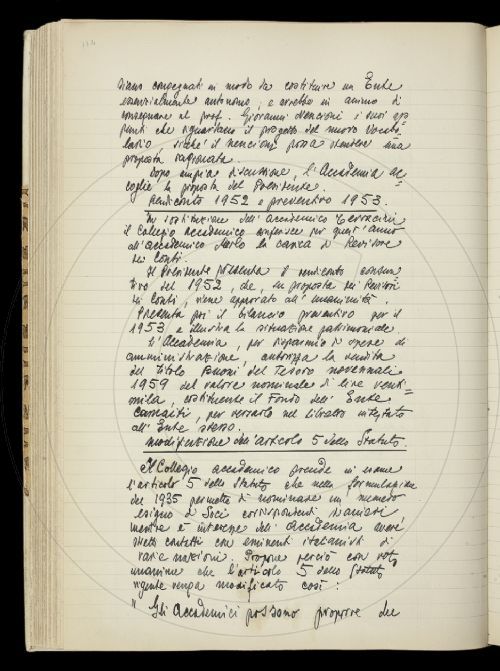 siano consegnati in modo da costituire un Ente
essenzialmente autonomo, e avrebbe in animo di
consegnare al prof. Giovanni Nencioni i suoi ap=
punti che riguardano il progetto del nuovo Vocabo=
lario sicché il Nencioni possa stendere una
proposta ragionata.
Dopo ampia discussione, l'Accademia ac=
coglie la proposta del Presidente.
Rendiconto 1952 e preventivo 1953.
In sostituzione dell'accademico Terracini
il Collegio accademico conferisce per quest'anno
all'accademico la carica di Revisore
dei Conti.
Il Presidente presenta il rendiconto consun
tivo del 1952, che, su proposta dei Revisori
dei Conti, viene approvato all'unanimità.
Presenta poi il bilancio preventivo per il
1953 e illustra la situazione patrimoniale
L'Accademia, per risparmio di spese di
amministrazione, autorizza la vendita
del titolo Buoni del Tesoro novennali
1959 del valore nominale di lire venti=
mila, costituente il Fondo dell'Ente
, per versarlo nel libretto intestato
all'Ente stesso.
Modificazione dell'articolo 5 dello Statuto.
Il Collegio accademico prende in esame
l'articolo 5 dello Statuto che nella formulazione
del 1935 permette di nominare un numero
esiguo di Soci corrispondenti stranieri
mentre è interesse dell'Accademia avere
stretti contatti con eminenti italianisti di
varie nazioni. Propone perciò con voto
unanime che l'articolo 5 dello Statuto
vigente venga modificato così:
" Gli Accademici possono proporre che